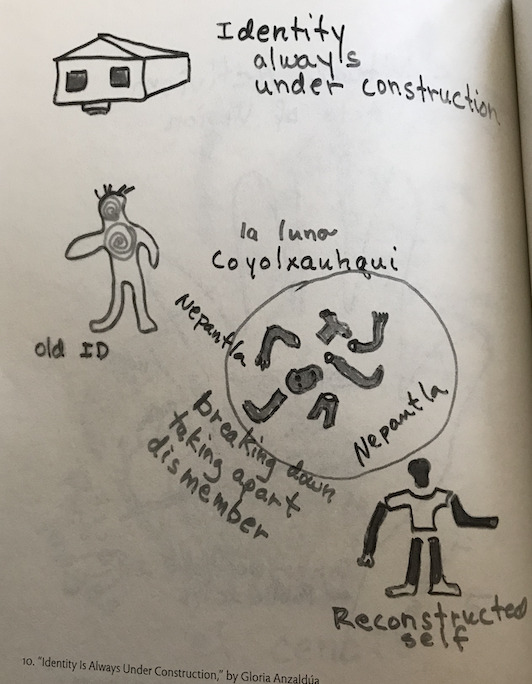 Identity
always
under construction
la luna
Coyolxauhqui
Nepantla
old ID
breaking down
taking apart
dismember
Nepantla
Reconstructed
self
10. "Identity Is Always Under Construction," by Gloria Anzaldúa